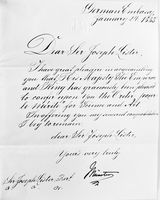 German Embassy
January 19. 1885
Dear Sir Joseph Lister
I have great pleasure in announcing
you that His Majesty the Emperor
and King has graciously been pleased
to confer upon you the Order "pour
le Mérite" for Science and Art.
you my warmest congratulations
I beg to remain
dear Sir Joseph Lister,
Yours very truly
Münster
Sir Joseph Lister Bart